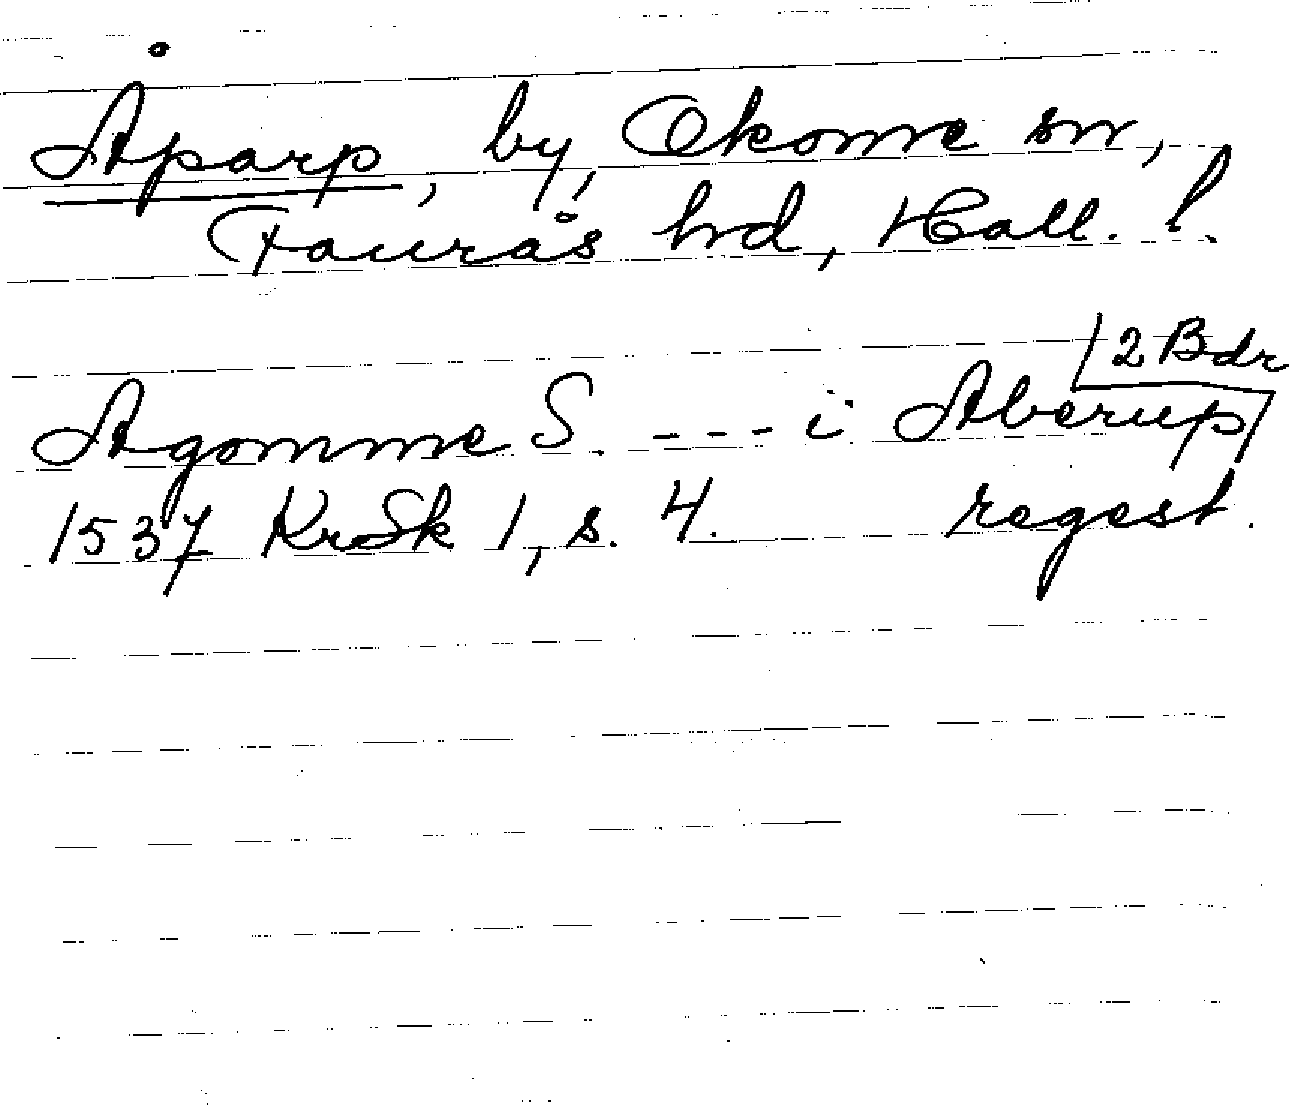 Åparp, by, Okome sn,
Faurås hrd, Hall. l.
Agomme S. ---- i Aberup
2 Bdr
1537 KrSk 1, s. 4. regest.